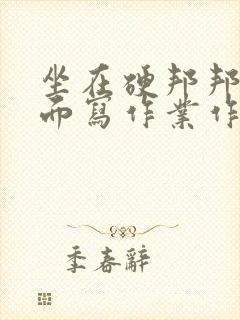 坐在硬邦邦
而寫作業作
季春辭